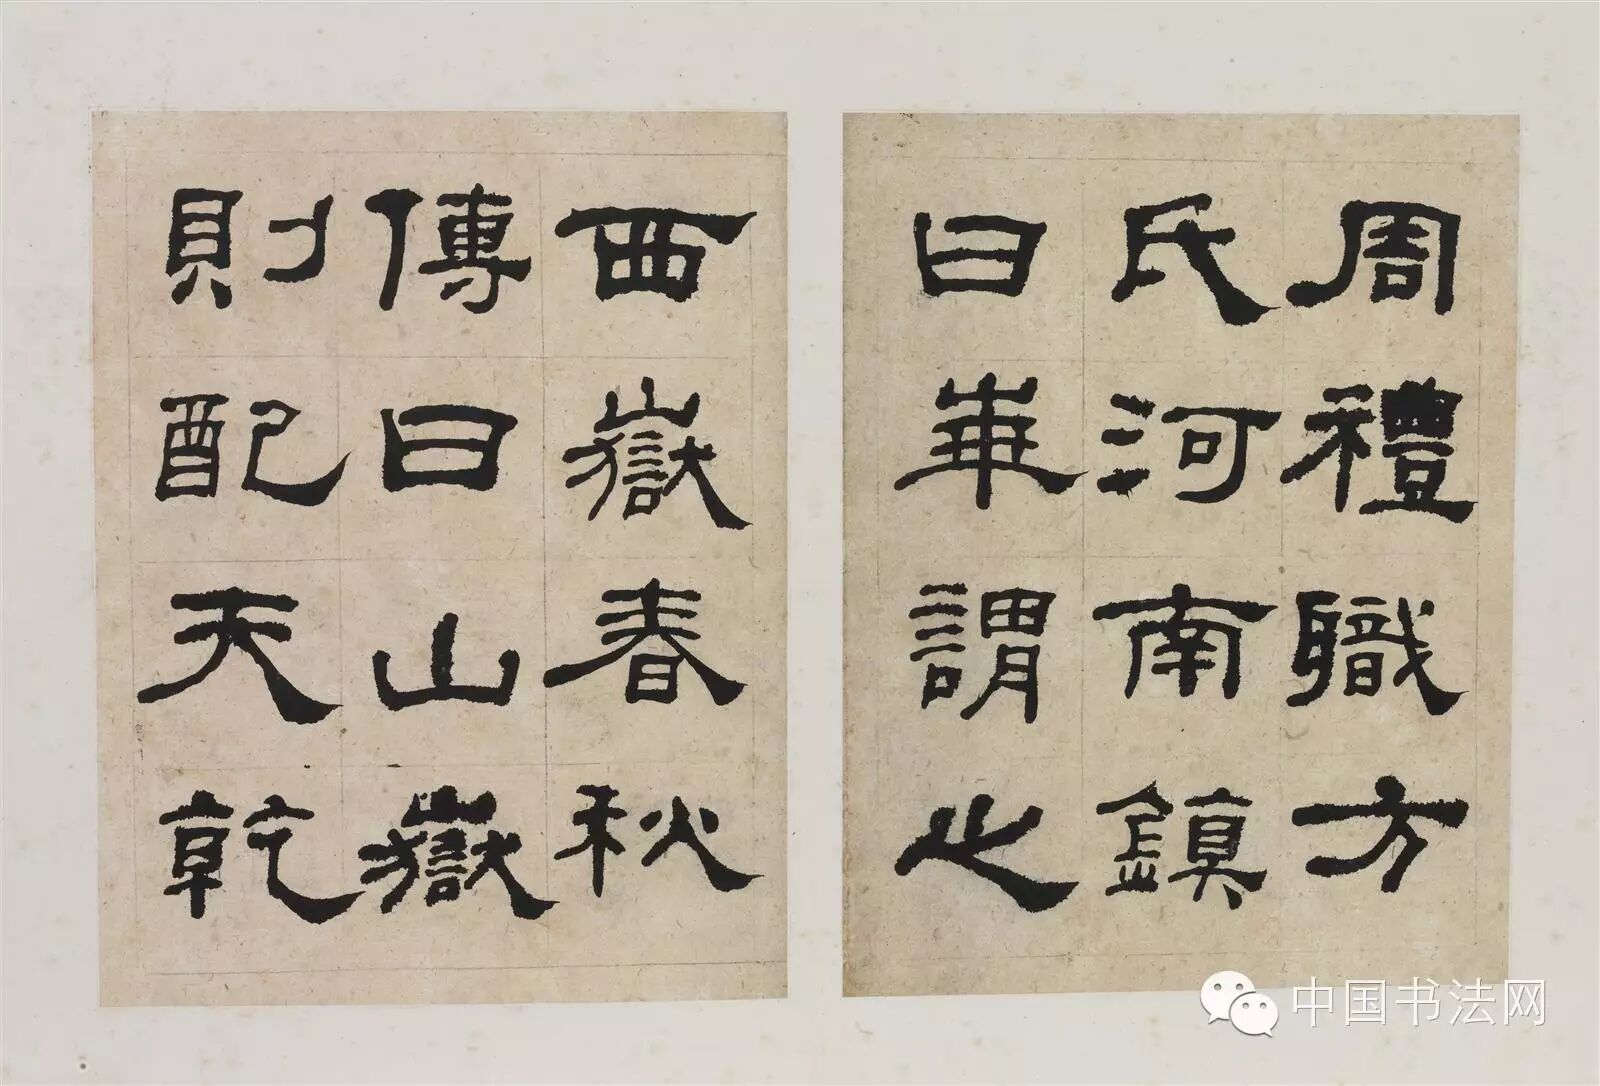 周禮職方
氏河南鎮
曰華謂之
西嶽春秋
傳曰山嶽
則配天乾
中国书法网